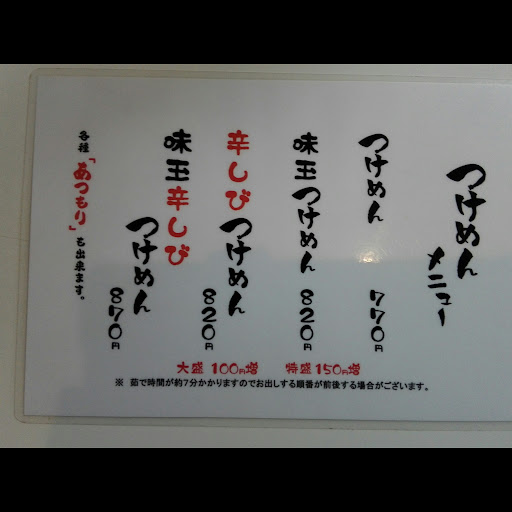 つけめん
メニュー
つけめん 770円
味玉つけめん 820円
辛しびつけめん 820円
味玉辛しびつけめん 870円
各種「あつもり」も出来ます。
大盛 100円増 特盛 150円増
※ 茹で時間が約7分かかりますのでお出しする順番が前後する場合がございます。